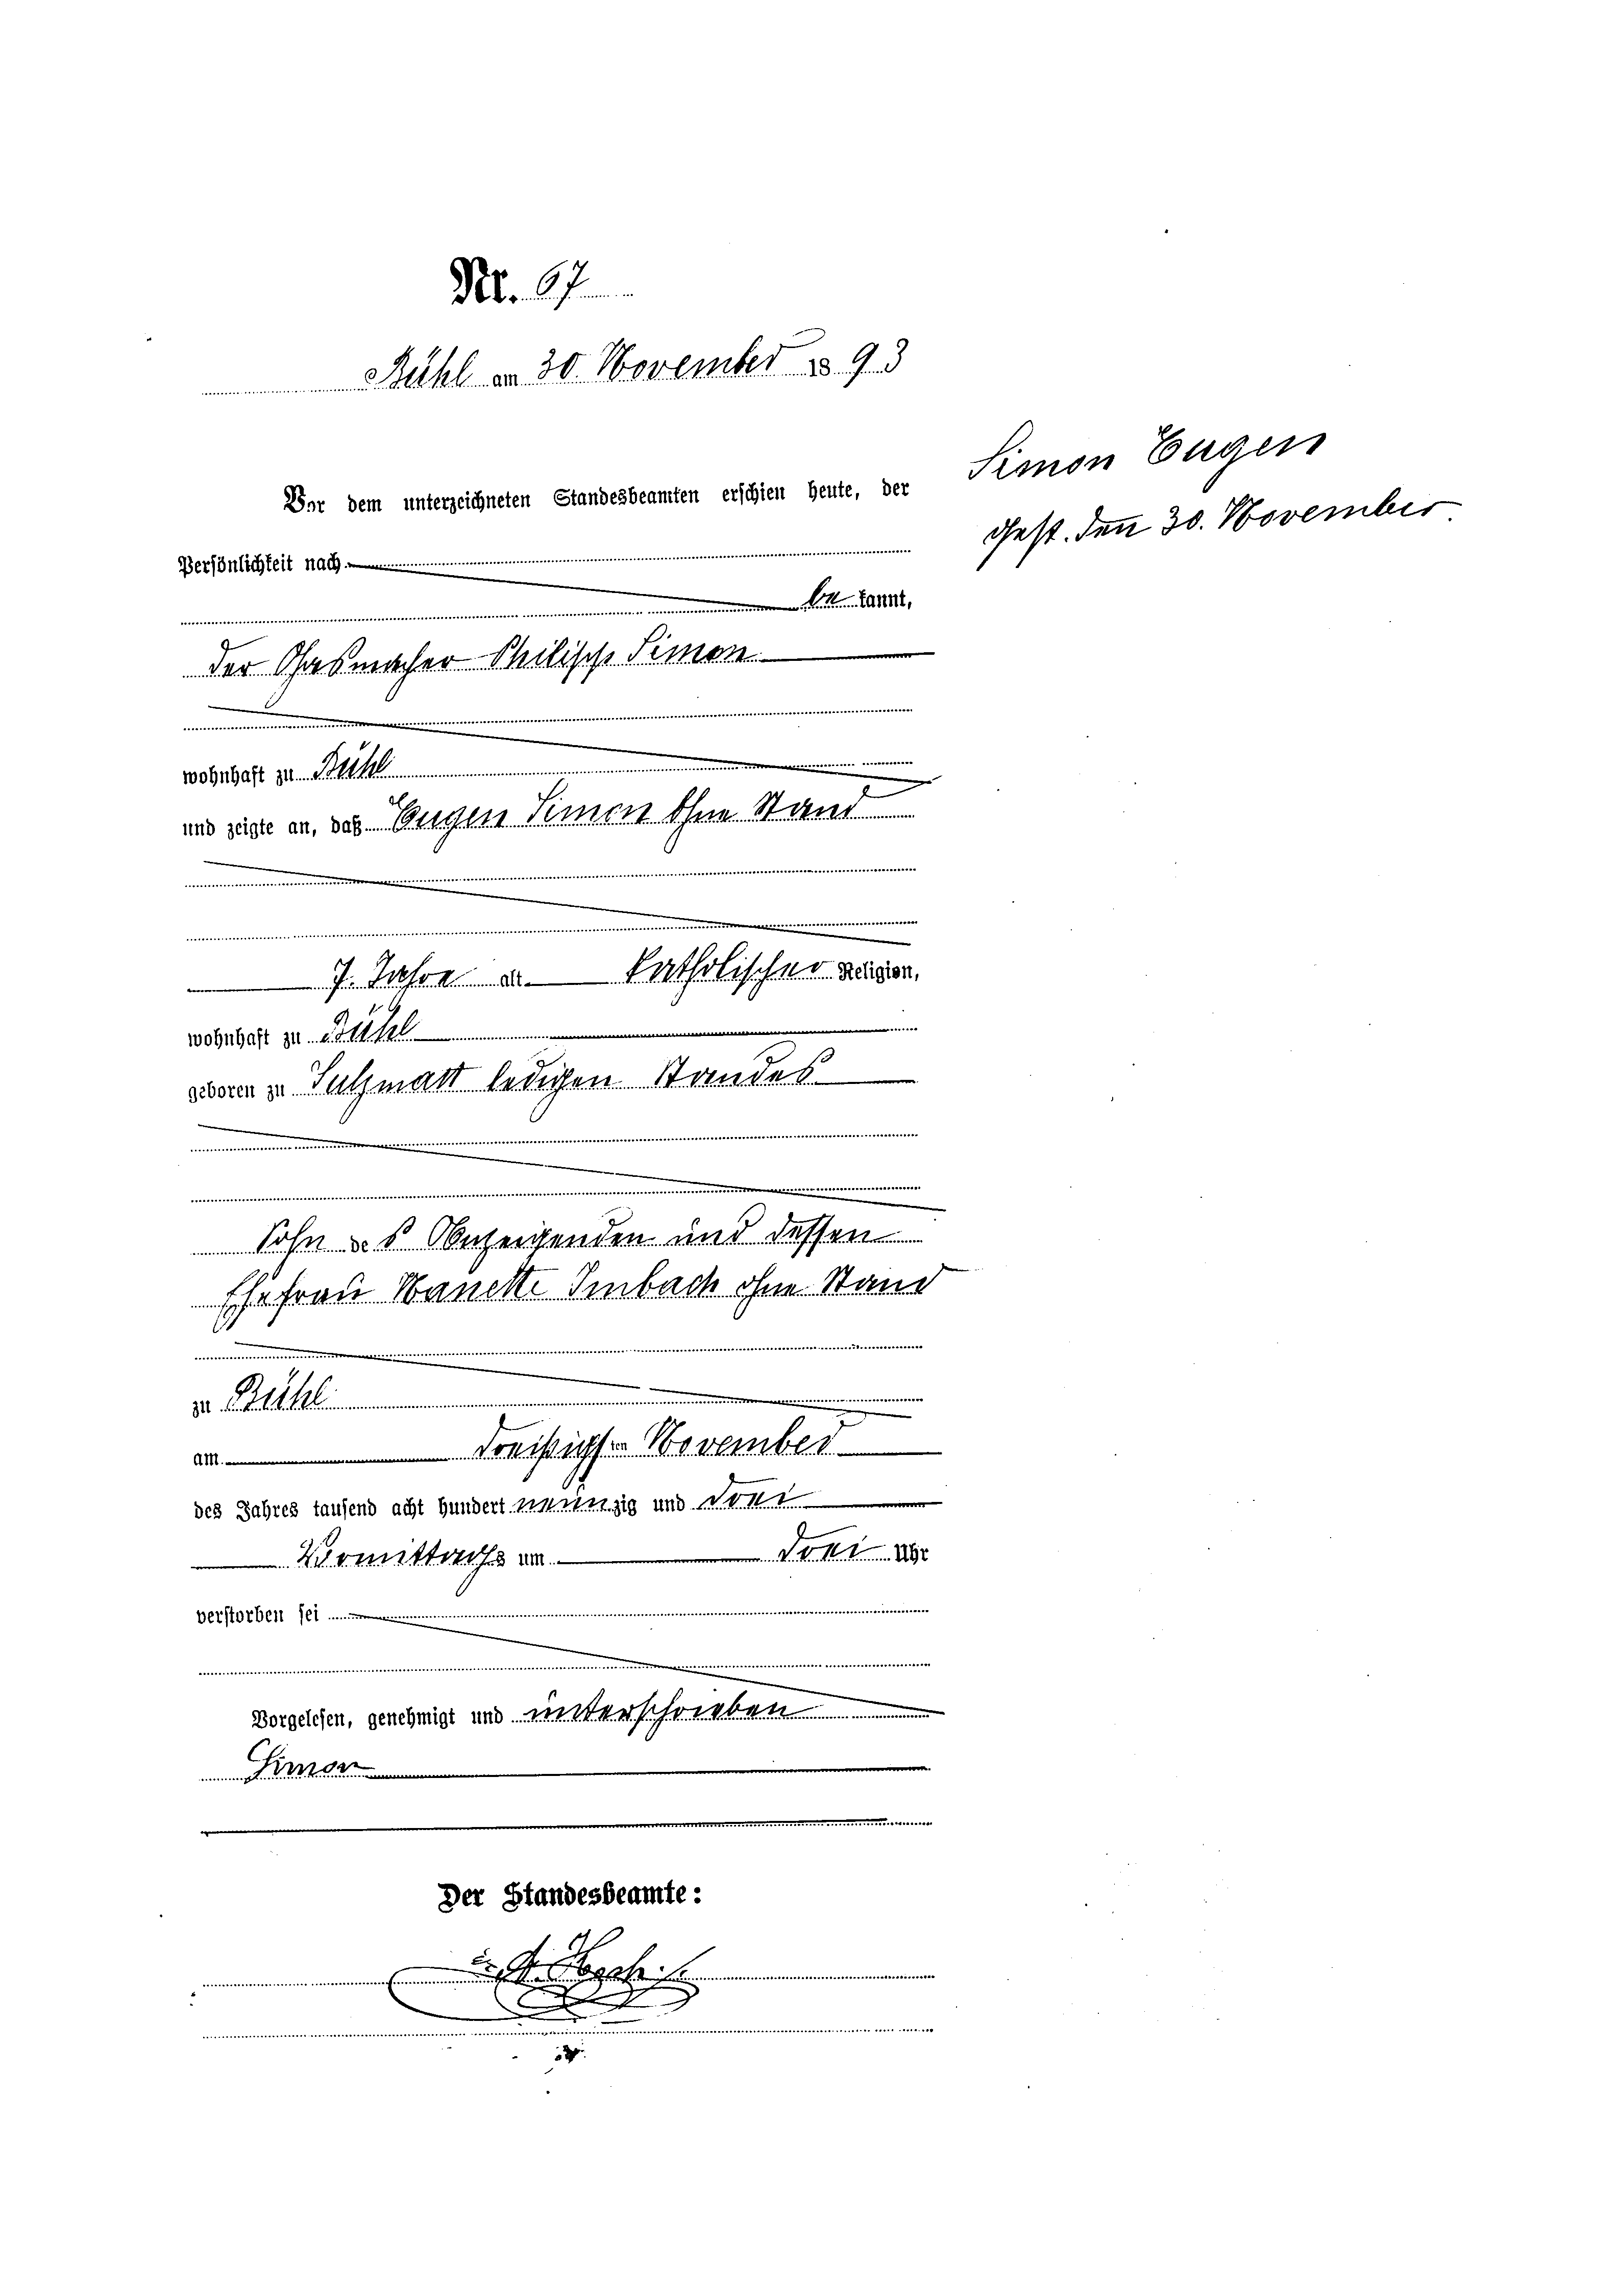 Nr. 67
Bühl am 30. November 1893
Simon Eugen
gest. den 30. November
Vor dem unterzeichneten Standesbeamten erschien heute, der
Persönlichkeit nach
be kannt,
der Gasmacher Philipp Simon
wohnhaft zu Bühl
und zeigte an, daß Eugen Simon ohne Stand
7. Jahre alt katholischer Religion,
wohnhaft zu Bühl
geboren zu Sulzmatt ledigen Standes
Sohn des Anzeigenden und dessen
Ehefrau Nanette Imbach ohne Stand
zu Bühl
am dreißigsten November
des Jahres tausend acht hundert neunzig und drei
Vormittags um drei Uhr
verstorben sei
Vorgelesen, genehmigt und unterschrieben
Simon
Der Standesbeamte: